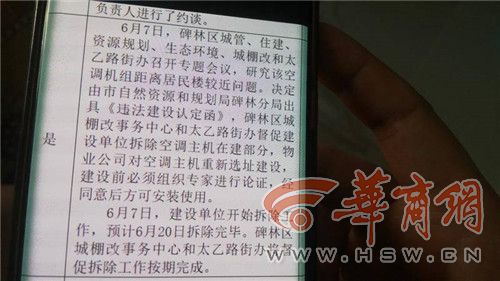 负责人进行了约谈。
6月7日，碑林区城管、住建、
资源规划、生态环境、城棚改和太
乙路街办召开专题会议，研究该空
调机组距离居民楼较近问题。决定
由市自然资源和规划局碑林分局出
具《违法建设认定函》，碑林区城
棚改事务中心和太乙路街办督促建
设单位拆除空调主机在建部分，物
业公司对空调主机重新选址建设，
建设前必须组织专家进行论证，经
同意后方可安装使用。
6月7日，建设单位开始拆除工
作，预计6月20日拆除完毕。碑林区
城棚改事务中心和太乙路街办将督
促拆除工作按期完成。
是
华商网
WWW.HSW.CN